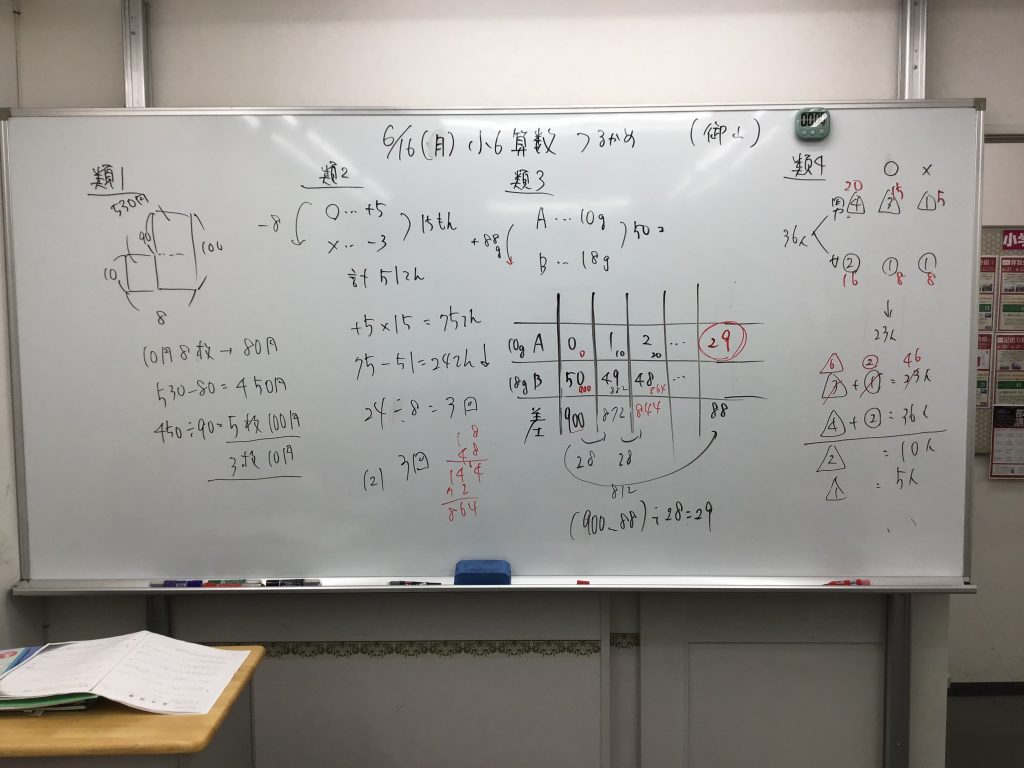 6/16(月) 小6算数 つるかめ
類1
530円
90
100
10
8
10円8枚→80円
530-80=450円
450÷90=5枚100円
3枚10円
類2
-8
○…+5
×…-3
計51とん
+5×15=75とん
75-51=24とん↓
24÷8=3回
(2) 3回
18
48
144
72
864
類3
+88g
A…10g
B…18g
50コ
10g A 0 0 1 10 2 20 … 29
18g B 50 900 49 882 48 864 …
差 900 872 844 88
28 28
812
(900-88)÷28=29
類4
○ ×
36人
男 4 20 3 15 1 5
女 2 16 1 8 1 8
↓
23人
6 2 46
3+1=23人
4+2=36人
2=10人
1=5人